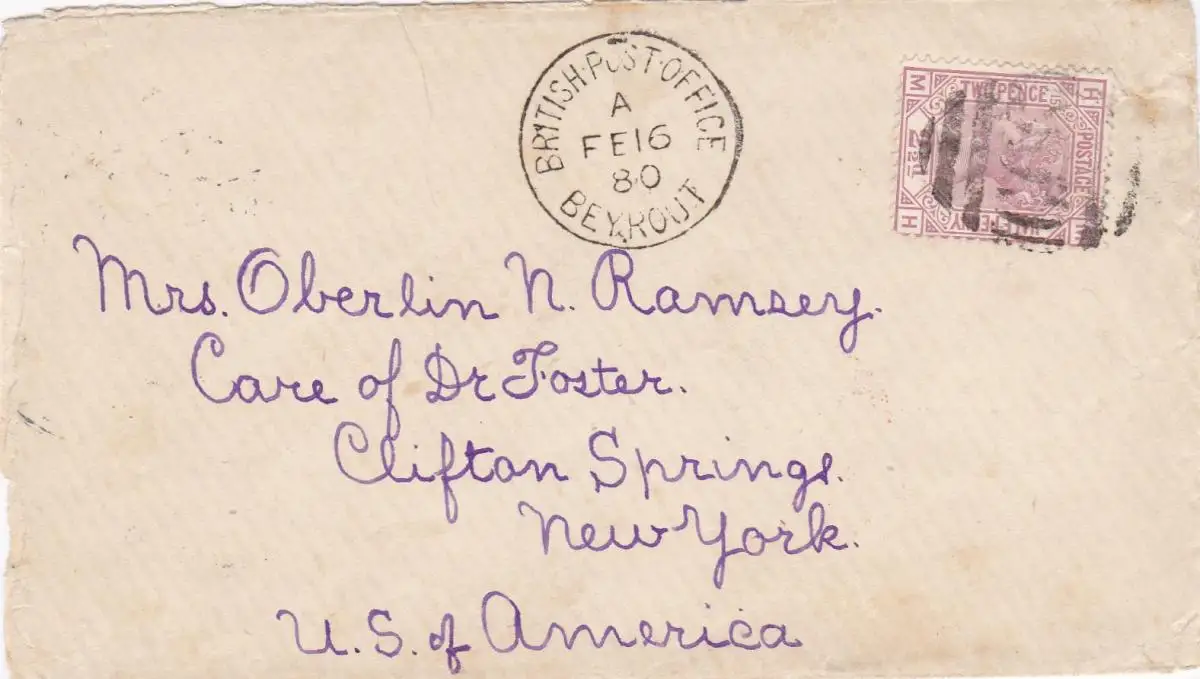 BRITISH·POST·OFFICE
A
FE16
80
BEYROUT
TWOPENCE
POSTAGE
HALFPENNY
M
H
H
Mrs. Oberlin N. Ramsey.
Care of Dr Foster.
Clifton Springs.
New York.
U.S. of America